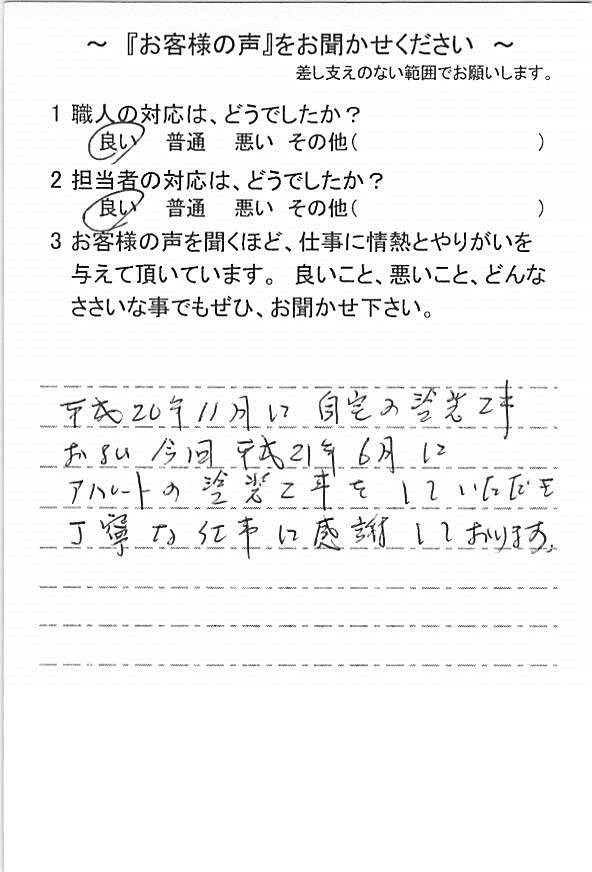 ～ 『お客様の声』をお聞かせください ～
差し支えのない範囲でお願いします。
1 職人の対応は、どうでしたか？
良い 普通 悪い その他( )
2 担当者の対応は、どうでしたか？
良い 普通 悪い その他( )
3 お客様の声を聞くほど、仕事に情熱とやりがいを
与えて頂いています。 良いこと、悪いこと、どんな
ささいな事でもぜひ、お聞かせ下さい。
平成20年11月に 自宅の塗装工事
および 今回 平成21年6月に
アパートの塗装工事を していただき
丁寧な仕事に感謝しております。